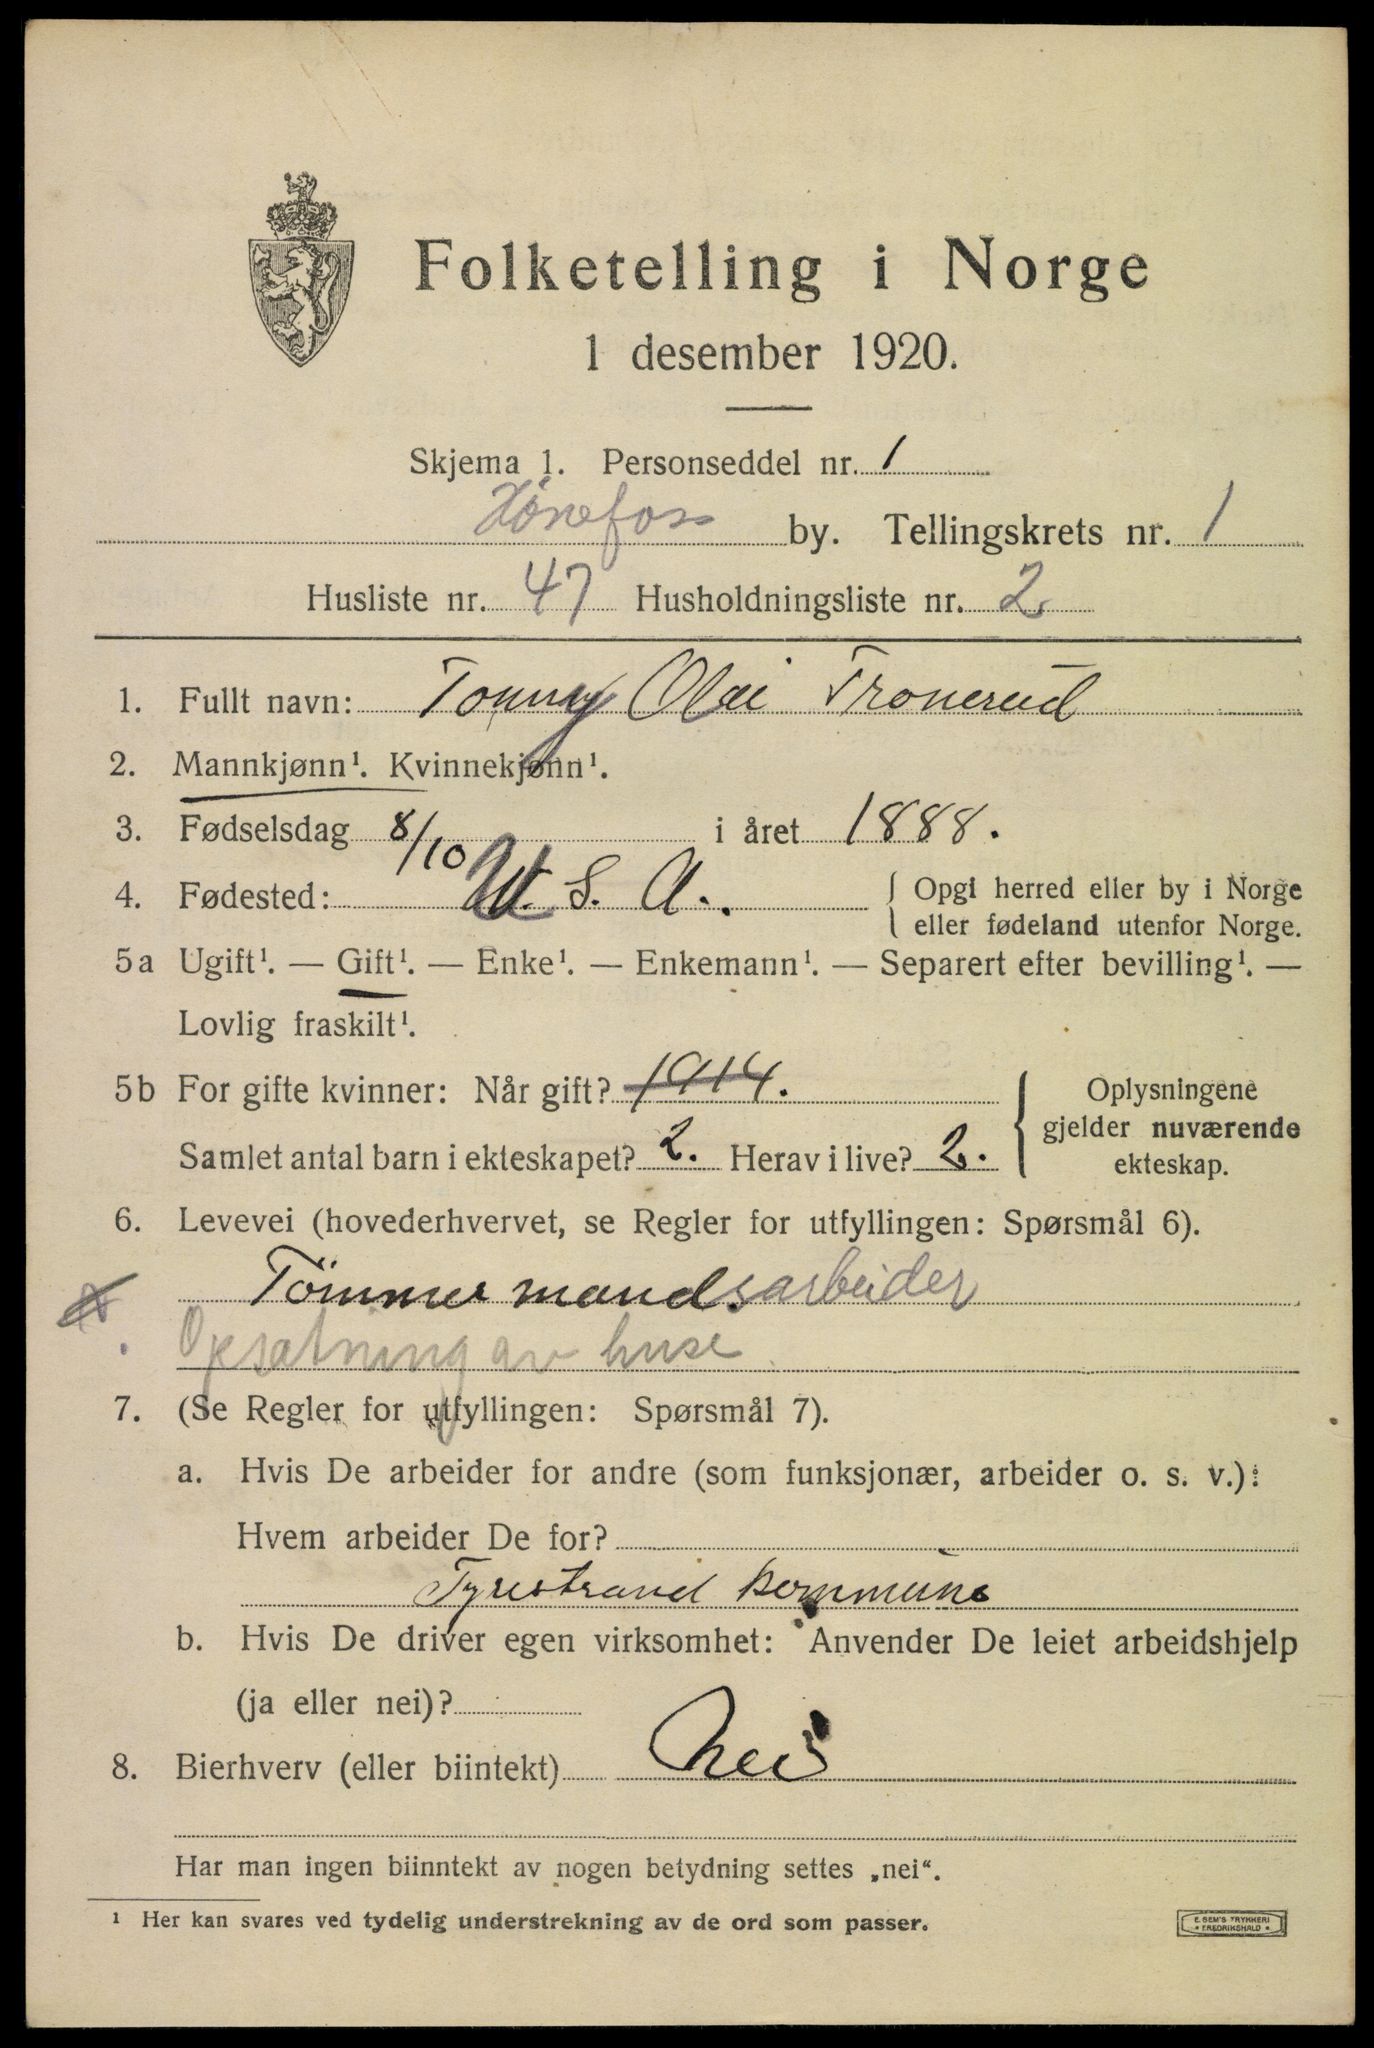 Folketelling i Norge
1 desember 1920.
Skjema 1. Personseddel nr. 1
Hönefoss by. Tellingskrets nr. 1
Husliste nr. 47 Husholdningsliste nr. 2.
1. Fullt navn: Tonny Olai Tronerud
2. Mannkjønn¹. Kvinnekjønn¹.
3. Fødselsdag 8/10 i året 1888.
4. Fødested: U. S. A. { Opgi herred eller by i Norge
eller fødeland utenfor Norge.
5a Ugift¹. — Gift¹. — Enke¹. — Enkemann¹. — Separert efter bevilling¹. —
Lovlig fraskilt¹.
5b For gifte kvinner: Når gift? 1914. { Oplysningene
gjelder nuværende
ekteskap.
Samlet antal barn i ekteskapet? 2. Herav i live? 2.
6. Levevei (hovederhvervet, se Regler for utfyllingen: Spørsmål 6).
Tömmermandsarbeider
Opsætning av huse
7. (Se Regler for utfyllingen: Spørsmål 7).
a. Hvis De arbeider for andre (som funksjonær, arbeider o. s. v.):
Hvem arbeider De for?
Tyristrand kommune
b. Hvis De driver egen virksomhet: Anvender De leiet arbeidshjelp
(ja eller nei)?
8. Bierhverv (eller biintekt) Nei
Har man ingen biinntekt av nogen betydning settes „nei“.
¹ Her kan svares ved tydelig understrekning av de ord som passer.
E. SEM'S TRYKKERI
• FREDRIKSHALD •